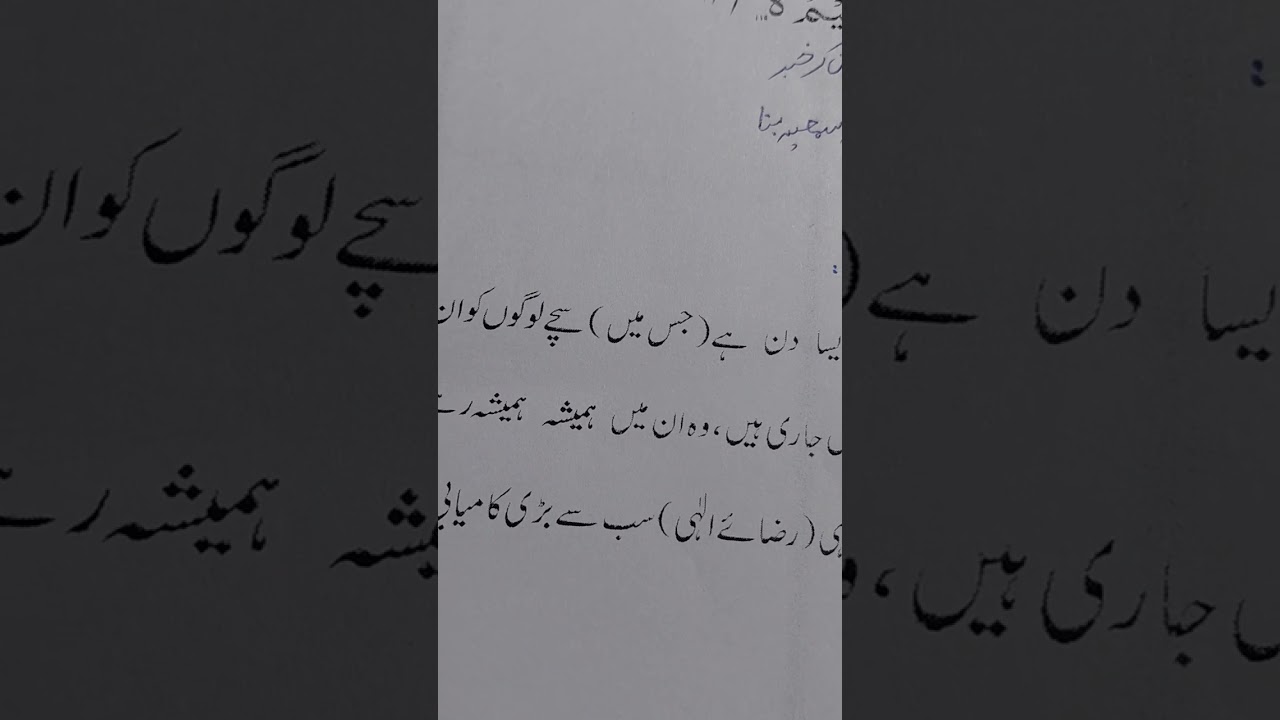 کر خبر
بنا
یسا دن ہے (جس میں) سچے لوگوں کو ان
جاری ہیں، وہ ان میں ہمیشہ ہمیشہ
(رضائے الٰہی) سب سے بڑی کامیابی